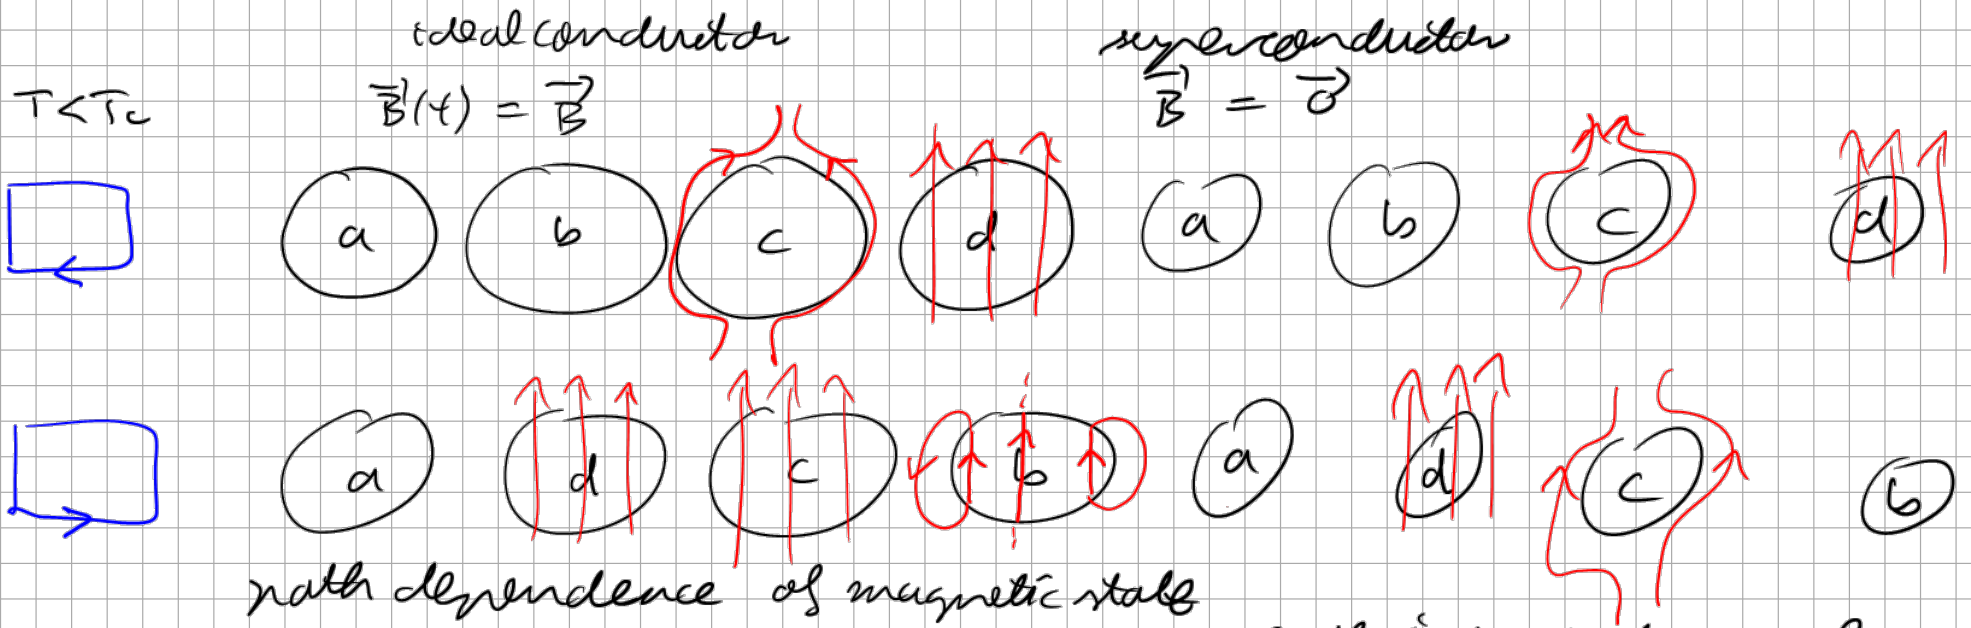 ideal conductor superconductor
T < Tc B⃗(t) = B⃗ B⃗ = 0⃗
a b c d a b c d
a d c b a d c b
path dependence of magnetic state